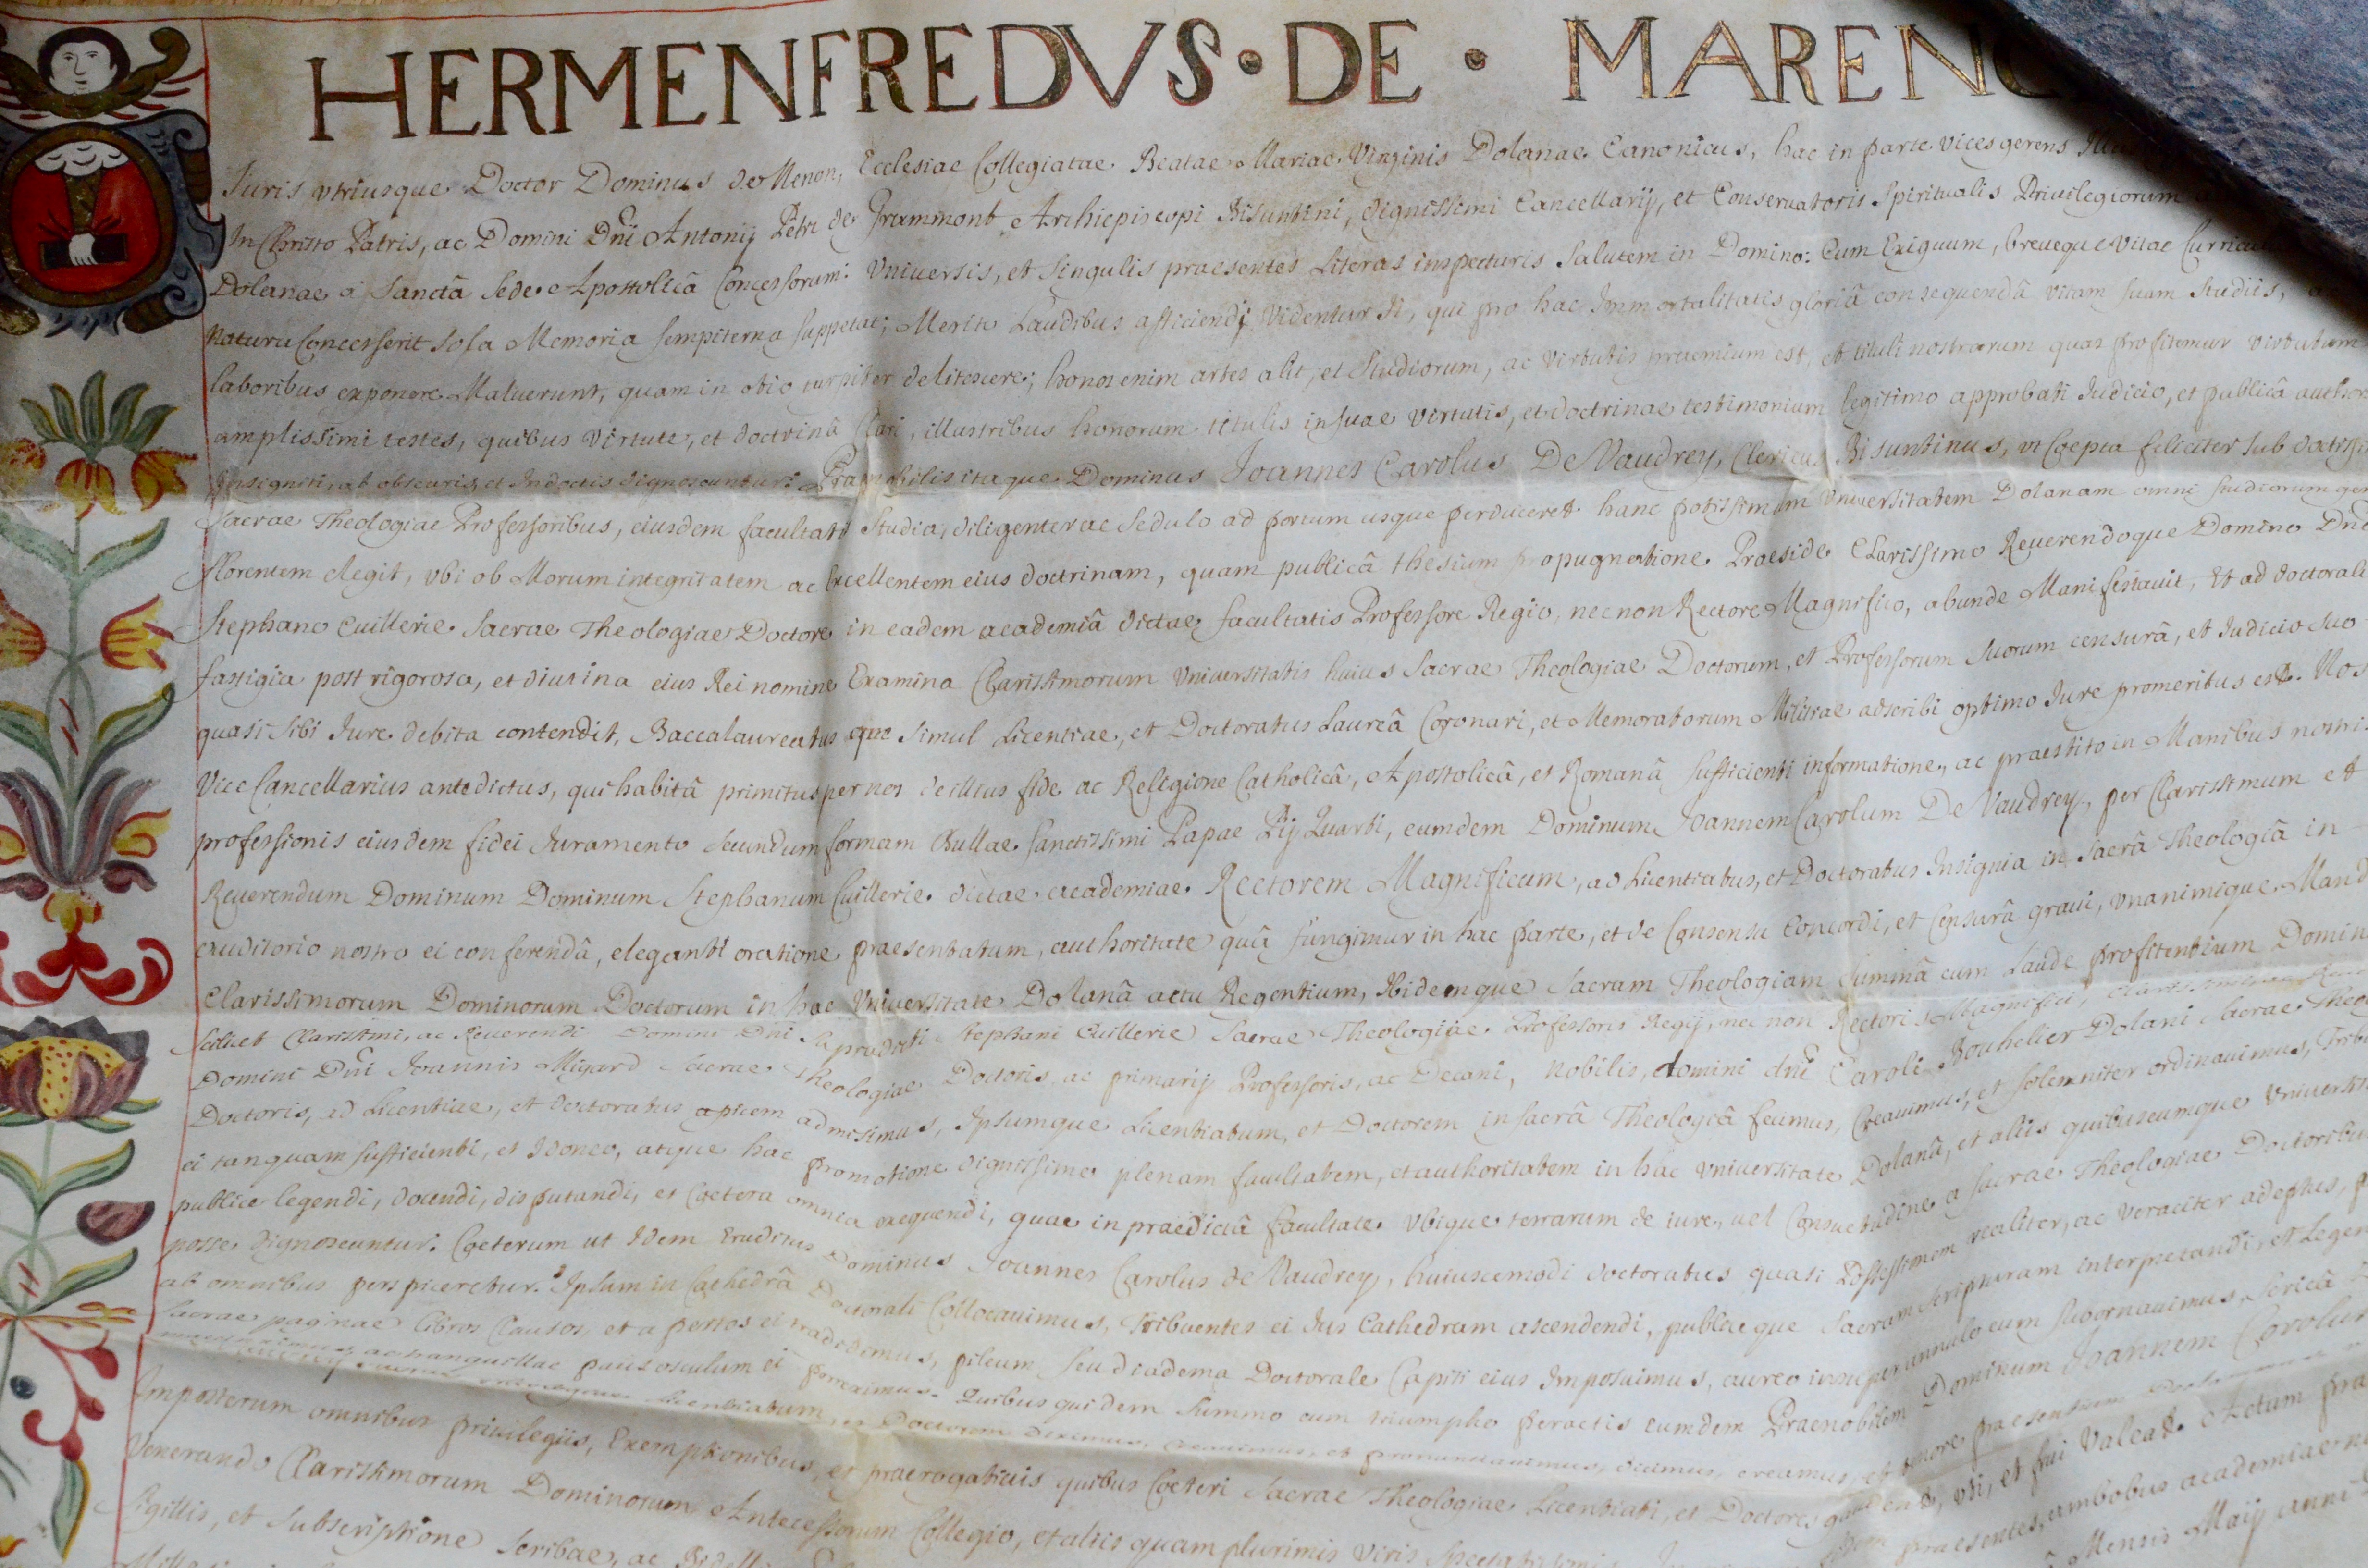 HERMENFREDVS · DE · MAREN
Iuris vtriusque Doctor Dominus de Menon, Ecclesiae Collegiatae Beatae Mariae Virginis Dolanae Canonicus, hac in parte vices gerens
In Christo Patris, ac Domini Dni Antonij Petri de Grammont Archiepiscopi Bisuntini, dignissimi Cancellarij, et Conseruatoris Spiritualis Priuilegiorum
Dolanae a Sanctâ Sede Apostolicâ Concessorum: Vniuersis, et Singulis praesentes Literas inspecturis Salutem in Domino: Cum Exiguum, breueque Vitae
Natura Concesserit sola Memoria sempiterna suppetat; Merito Laudibus afficiendj Videntur Ii, qui pro hac Immortalitatis gloriâ consequendâ vitam suam Studiis,
laboribus exponere Maluerunt, quam in otio turpiter delitescere; honos enim artes alit, et Studiorum, ac virtutis praemium est, et tituli nostrarum quas profitemur virtutum
amplissimi testes, quibus virtute, et doctrinâ Clari, illustribus honorum titulis in suae virtutis, et doctrinae testimonium legitimo approbati Iudicio, et publicâ
Insigniti, ab obscuris, et Indoctis dignoscuntur: Praenobilis itaque Dominus Joannes Carolus De Vaudrey, Clericus Bisuntinus, vt Coepta feliciter sub
Sacrae Theologiae Professoribus, eiusdem facultatis Studia, diligenter ac Sedulo ad portum usque perduceret hanc potissimum Vniuersitatem Dolanam omni studiorum
florentem elegit, vbi ob Morum integritatem ac Excellentem eius doctrinam, quam publicâ thesium propugnatione Praeside Clarissimo Reuerendoque Domino Dno
Stephano Cuillerie Sacrae Theologiae Doctore in eadem academiâ dictae facultatis Professore Regio, necnon Rectore Magnifico, abunde Manifestauit, Et ad
fastigia post rigorosa, et diutina eius Rei nomine Examina Clarissimorum Vniuersitatis huius Sacrae Theologiae Doctorum, et Professorum suorum censurâ, et Iudicio suo
quasi sibi Iure debita contendit, Baccalaureatus que simul Licentiae, et Doctoratus Laureâ Coronari, et Memoratorum Militiae adscribi optimo Iure promeritus est. Nos
Vice Cancellarius antedictus, qui habitâ primitus per nos de illius fide ac Religione Catholicâ, Apostolicâ, et Romanâ sufficienti informatione, ac praestito in Manibus nostris
professionis eiusdem fidei Iuramento secundum formam Bullae sanctissimi Papae Pij Quarti, eumdem Dominum Joannem Carolum De Vaudrey, per Clarissimum et
Reuerendum Dominum Dominum Stephanum Cuillerie dictae academiae Rectorem Magnificum, ad Licentiatus, et Doctoratus Insignia in Sacrâ Theologiâ in
auditorio nostro ei conferendâ, eleganti oratione praesentatum, authoritate quâ fungimur in hac parte, et de Consensu Concordi, et Censurâ graui, vnanimique
Clarissimorum Dominorum Doctorum in hac Vniuersitate Dolanâ actu Regentium, Ibidemque Sacram Theologiam summâ cum Laude profitentium
Scilicet Clarissimi, ac Reuerendi Domini Dni Stephani Cuillerie Sacrae Theologiae Professoris Regij, nec non Rectoris Magnifici,
Domini Dni Joannis Migard Sacrae Theologiae Doctoris, ac primarij Professoris, ac Decani, Nobilis, domini dni Caroli Bouhelier Dolani Sacrae
Doctoris, ad Licentiae, et doctoratus apicem admisimus, Ipsumque Licentiatum, et Doctorem in sacrâ Theologiâ fecimus, Creauimus, et solemniter ordinauimus,
ei tanquam sufficienti, et Idoneo, atque hac promotione dignissimo plenam facultatem, et authoritatem in hac vniuersitate Dolanâ, et aliis quibuscumque
publice legendi, docendi, disputandi, et Caetera omnia exequendi, quae in praedictâ facultate vbique terrarum de iure, uel Consuetudine a sacrae Theologiae
posse dignoscuntur. Caeterum ut Idem Eruditus Dominus Joannes Carolus de Vaudrey, huiuscemodi doctoratus quasi Possessionem realiter, ac veraciter adeptus,
ab omnibus perspiceretur. Ipsum in Cathedrâ Doctorali Collocauimus, Tribuentes ei Ius Cathedram ascendendi, publice que Sacram scripturam interpretandi, et
Sacrae paginae Libros Clausos, et apertos ei tradidimus, pileum seu diadema Doctorale Capiti eius Imposuimus, aureo insuper annulo eum subornauimus,
ac tranquillae pacis osculum ei porreximus. Quibus quidem Summo cum triumpho peractis eumdem Praenobilem Dominum Joannem
Licentiatum, et Doctorem diximus, creauimus, et pronuntiauimus, dicimus, creamus, et tenore praesentium
Imposterum omnibus priuilegiis, Exemptionibus, et praerogatiuis quibus Caeteri Sacrae Theologiae Licentiati, et Doctores gaudent, vti, et frui valeat. Actum
Venerando Clarissimorum Dominorum Antecessorum Collegio, et aliis quam plurimis viris praesentes, ambobus academiae
Sigillis, et Subscriptione Scribae, ac Mensis Maij anni